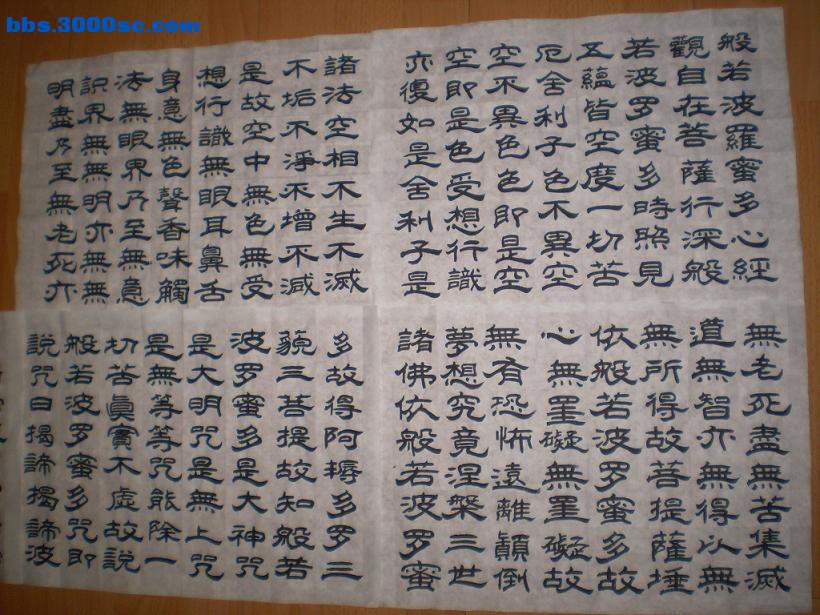 bbs.3000sc.com
般若波羅蜜多心經
觀自在菩薩行深般
若波罗蜜多時照見
五蘊皆空度一切苦
厄舍利子色不異空
空不異色色即是空
空即是色受想行識
亦復如是舍利子是
諸法空相不生不滅
不垢不淨不增不減
是故空中無色無受
想行識無眼耳鼻舌
身意無色聲香味觸
法無眼界乃至無意
識界無無明亦無無
明盡乃至無老死亦
無老死盡無苦集滅
道無智亦無得以無
無所得故菩提薩埵
依般若波罗蜜多故
心無罣礙無罣礙故
無有恐怖遠離顛倒
夢想究竟涅槃三世
諸佛依般若波罗蜜
多故得阿耨多罗三
藐三菩提故知般若
波罗蜜多是大神咒
是大明咒是無上咒
是無等等咒能除一
切苦眞實不虛故說
般若波罗蜜多咒即
說咒曰揭諦揭諦波